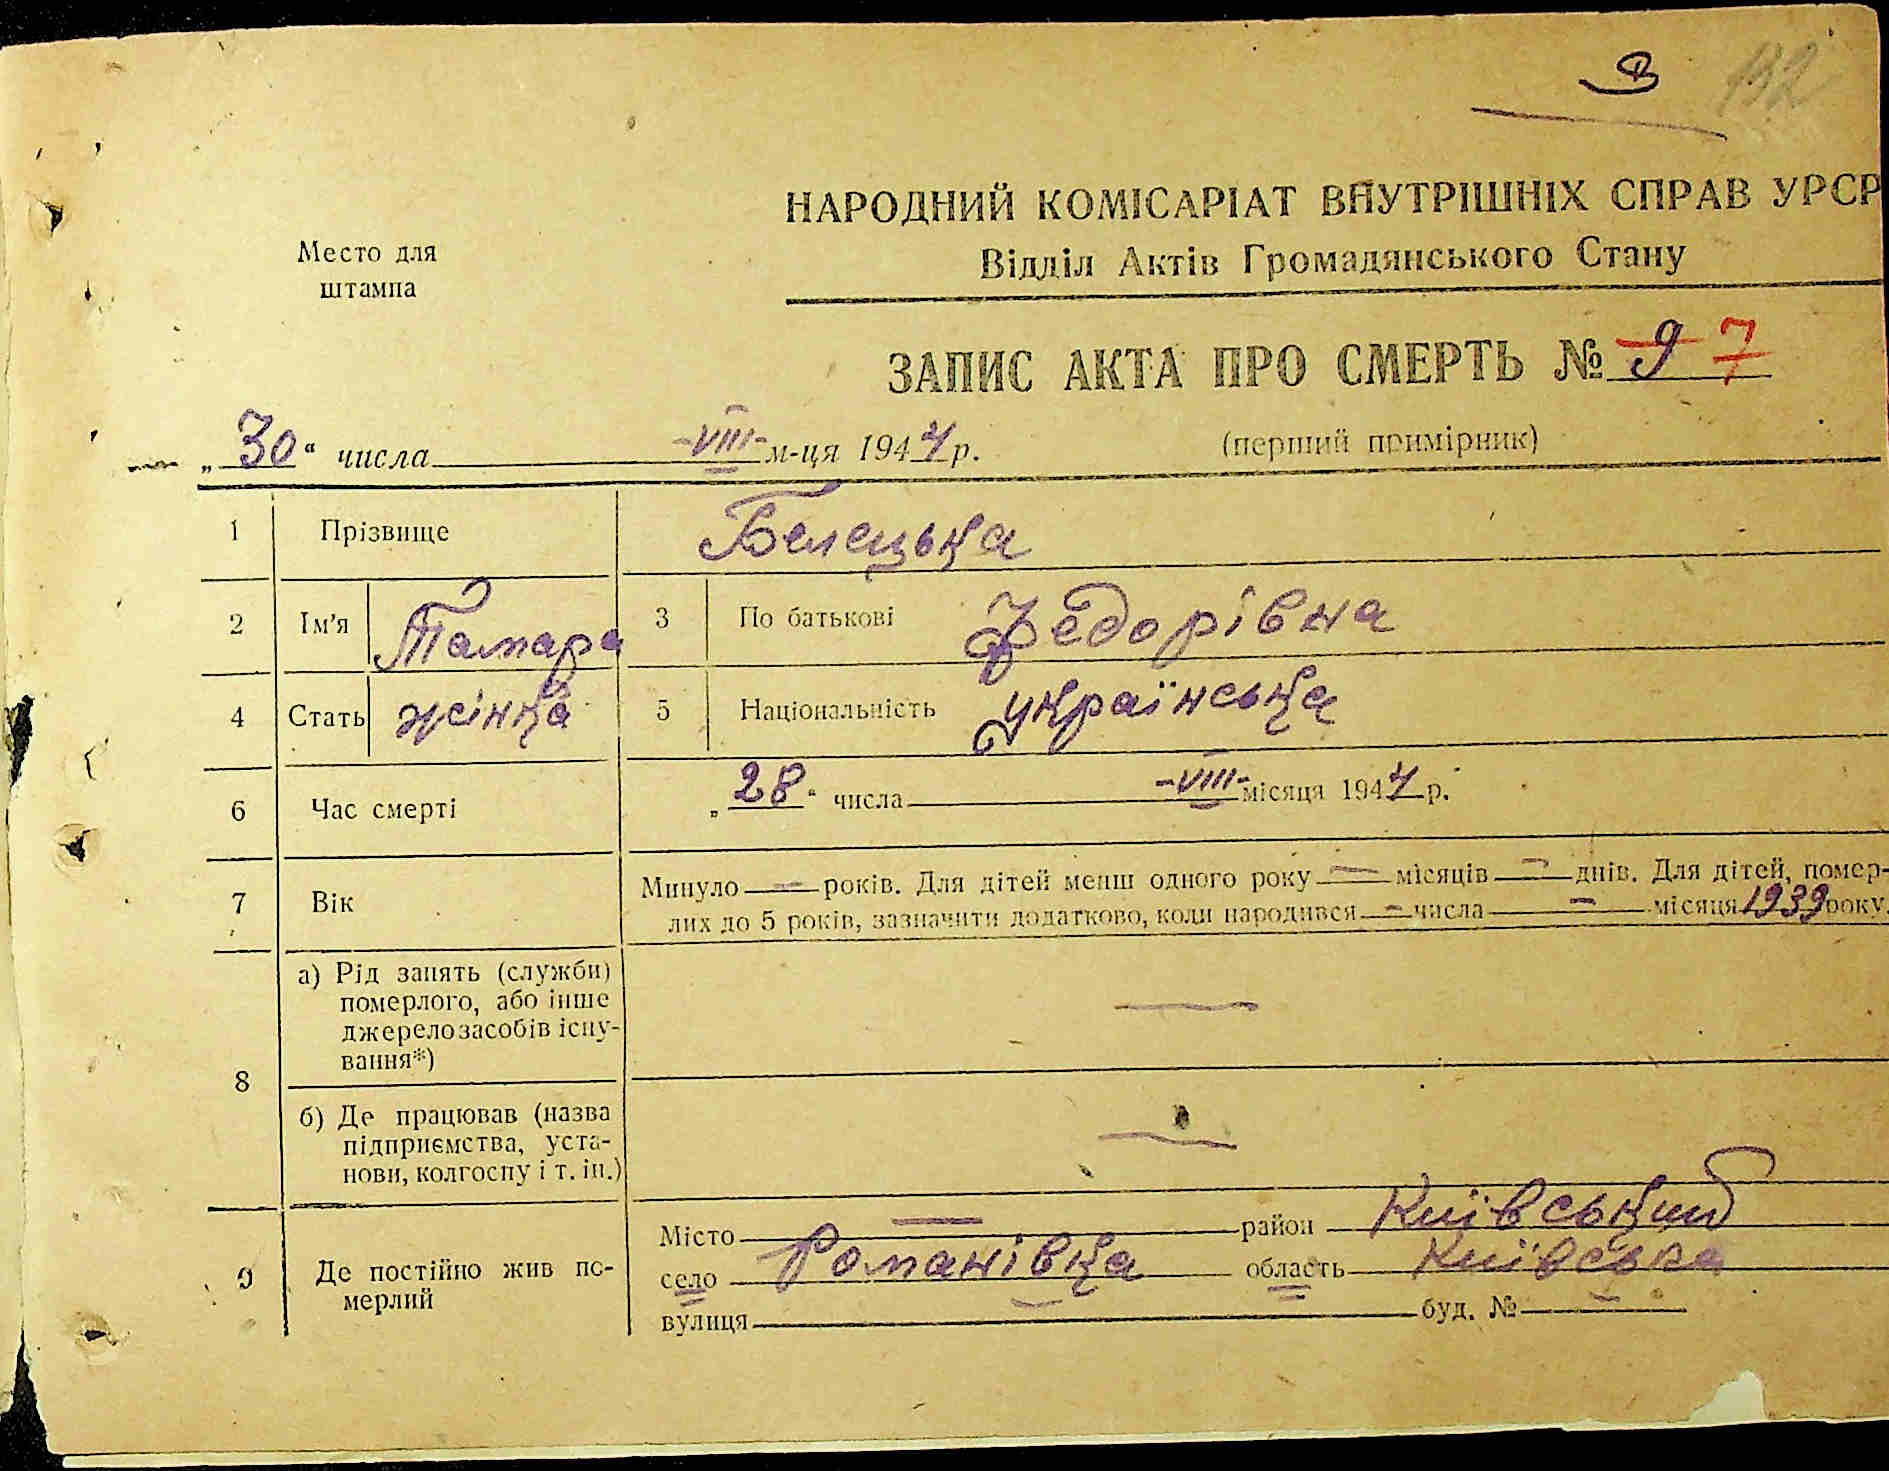 В 132
НАРОДНИЙ КОМІСАРІАТ ВНУТРІШНІХ СПРАВ УРСР
Відділ Актів Громадянського Стану
Место для
штампа
ЗАПИС АКТА ПРО СМЕРТЬ № 9 7
„30“ числа -VIII- м-ця 1944 р. (перший примірник)
1 Прізвище Белецька
2 Ім’я Тамара 3 По батькові Федорівна
4 Стать жінка 5 Національність українська
6 Час смерті „28“ числа -VIII- місяця 1944 р.
7 Вік Минуло — років. Для дітей менш одного року — місяців — днів. Для дітей, помер-
лих до 5 років, зазначити додатково, коли народився — числа — місяця 1939 року.
8 а) Рід занять (служби)
померлого, або інше
джерело засобів існу-
вання*) —
б) Де працював (назва
підприємства, уста-
нови, колгоспу і т. ін.) —
9 Де постійно жив по-
мерлий
Місто — район Київський
село Романівка область Київська
вулиця — буд. № —